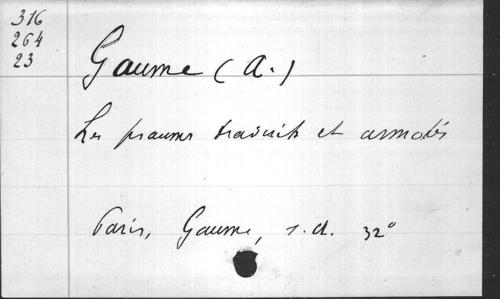 316
264
23
Gaume (A.)
Les psaumes traduits et annotés
Paris, Gaume, s.d. 32°